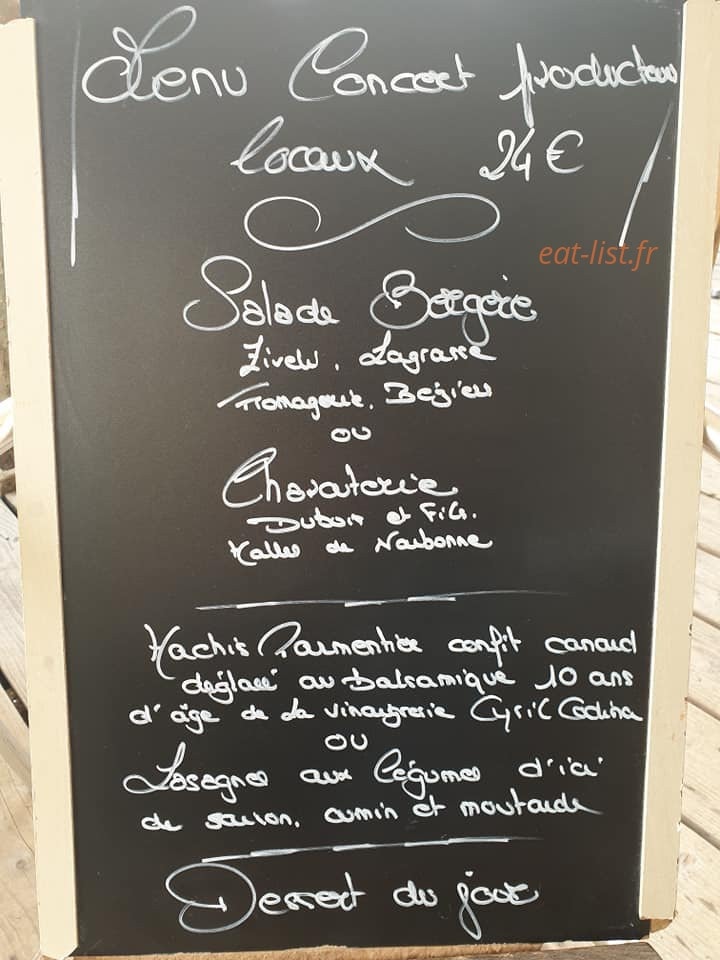 Menu Concert producteurs
locaux 24€
eat-list.fr
Salade Bergère
Lagrasse
Fromagerie. Beziers
ou
Charcuterie
Dubois et Fils.
Halles de Narbonne
Hachis Parmentier confit canard
déglacé au Balsamique 10 ans
d'âge de la vinaigrerie Cyril Codina
OU
Lasagnes aux légumes d'ici
de saison, cumin et moutarde
Dessert du jour